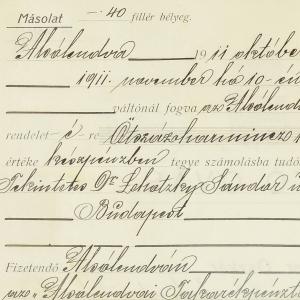 Másolat — 40 fillér bélyeg.
Alsólendva 1911 október
1911. november hó 10-én
páltónál fogva a/ző Alsólend
rendelet-é-re Ötszázharmincz
értéke készpénzben tegye számolásba tudó
Tekintetes Dr Lehotzky Sándor ü
Budapest
Fizetendő Alsólendván
az Alsólendvai Takarékpénzt